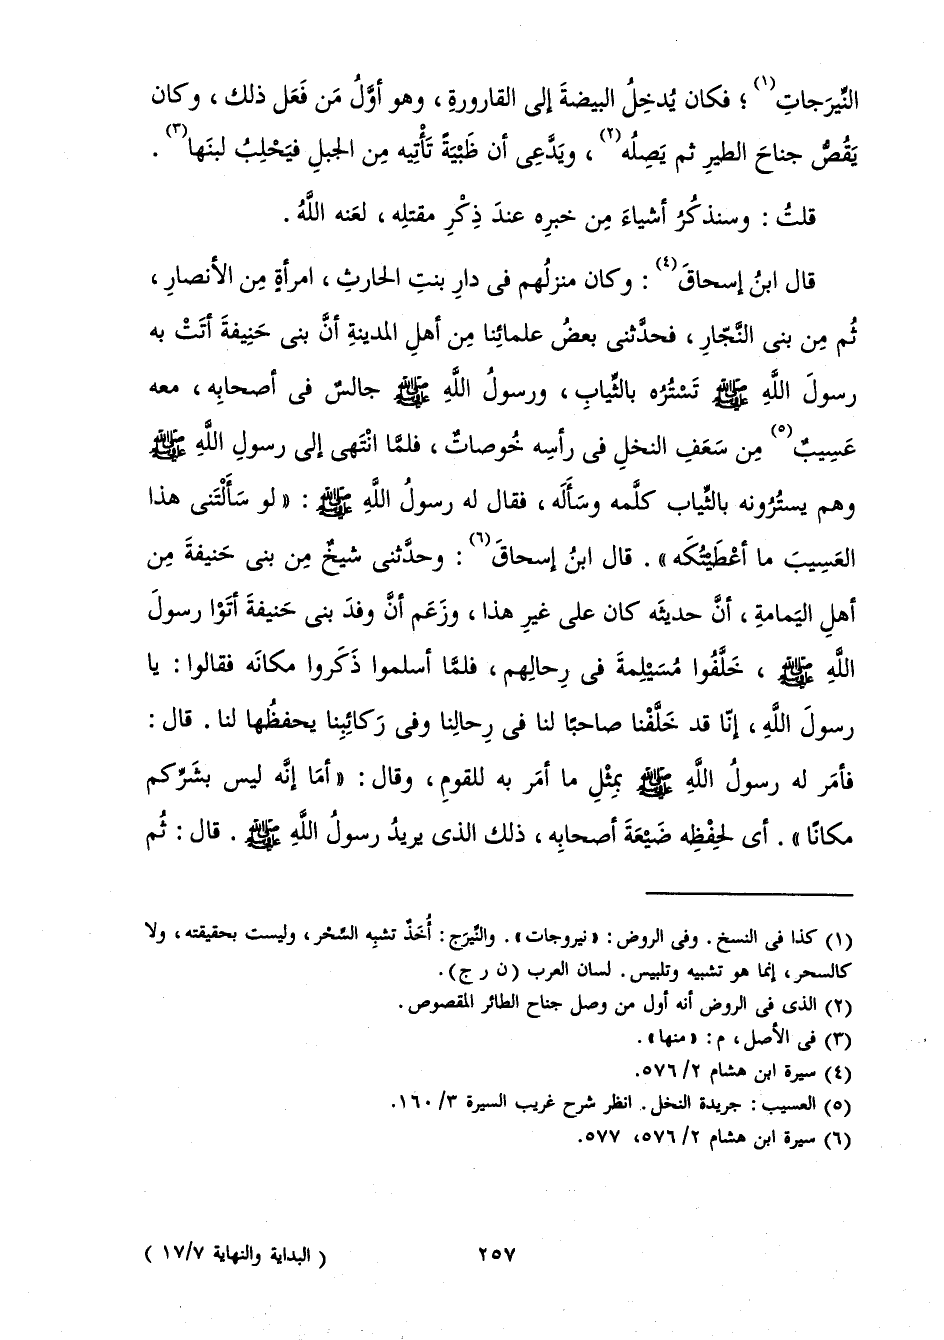 النِّيرَجاتِ(١)؛ فكان يُدخِلُ البيضةَ إلى القارورةِ، وهو أوَّلُ مَن فَعَل ذلك، وكان
يَقُصُّ جناحَ الطيرِ ثم يَصِلُه(٢)، ويَدَّعِى أن ظَبْيَةً تَأْتِيه مِن الجبلِ فيَحْلِبُ لبنَها(٣).
قلتُ: وسنذكُرُ أشياءَ مِن خبرِه عندَ ذِكْرِ مقتلِه، لعَنه اللَّهُ.
قال ابنُ إسحاقَ(٤): وكان منزلُهم فى دارِ بنتِ الحارثِ، امرأةٍ مِن الأنصارِ،
ثُم مِن بنى النَّجّارِ، فحدَّثنى بعضُ علمائِنا مِن أهلِ المدينةِ أنَّ بنى حَنِيفةَ أتَتْ به
رسولَ اللَّهِ ﷺ تَسْتُرُه بالثِّيابِ، ورسولُ اللَّهِ ﷺ جالسٌ فى أصحابِه، معه
عَسِيبٌ(٥) مِن سَعَفِ النخلِ فى رأسِه خُوصاتٌ، فلمَّا انْتَهى إلى رسولِ اللَّهِ ﷺ
وهم يستُرُونه بالثِّياب كلَّمه وسَأَلَه، فقال له رسولُ اللَّهِ ﷺ: «لو سَأَلْتَنى هذا
العَسِيبَ ما أَعْطَيْتُكَه». قال ابنُ إسحاقَ(٦): وحدَّثنى شيخٌ مِن بنى حَنيفةَ مِن
أهلِ اليَمامةِ، أنَّ حديثَه كان على غيرِ هذا، وزَعَم أنَّ وفدَ بنى حَنيفةَ أتَوْا رسولَ
اللَّهِ ﷺ، خَلَّفُوا مُسَيْلِمةَ فى رِحالِهم، فلمَّا أسلموا ذَكَروا مكانَه فقالوا: يا
رسولَ اللَّهِ، إنّا قد خَلَّفْنا صاحبًا لنا فى رِحالِنا وفى رَكائِبِنا يحفظُها لنا. قال:
فأمَر له رسولُ اللَّهِ ﷺ بمِثْلِ ما أمَر به للقومِ، وقال: «أمَا إنَّه ليس بشَرِّكم
مكانًا». أى لحِفْظِه ضَيْعَةَ أصحابِه، ذلك الذى يريدُ رسولُ اللَّهِ ﷺ. قال: ثُم
(١) كذا فى النسخ. وفى الروض: «نيروجات». والنِّيرَج: أُخَذٌ تشبِه السِّحْر، وليست بحقيقته، ولا
كالسحر، إنما هو تشبيه وتلبيس. لسان العرب (ن ر ج).
(٢) الذى فى الروض أنه أول من وصل جناح الطائر المقصوص.
(٣) فى الأصل، م: «منها».
(٤) سيرة ابن هشام ٢/ ٥٧٦.
(٥) العسيب: جريدة النخل. انظر شرح غريب السيرة ٣/ ١٦٠.
(٦) سيرة ابن هشام ٢/ ٥٧٦، ٥٧٧.
٢٥٧
( البداية والنهاية ١٧/٧ )